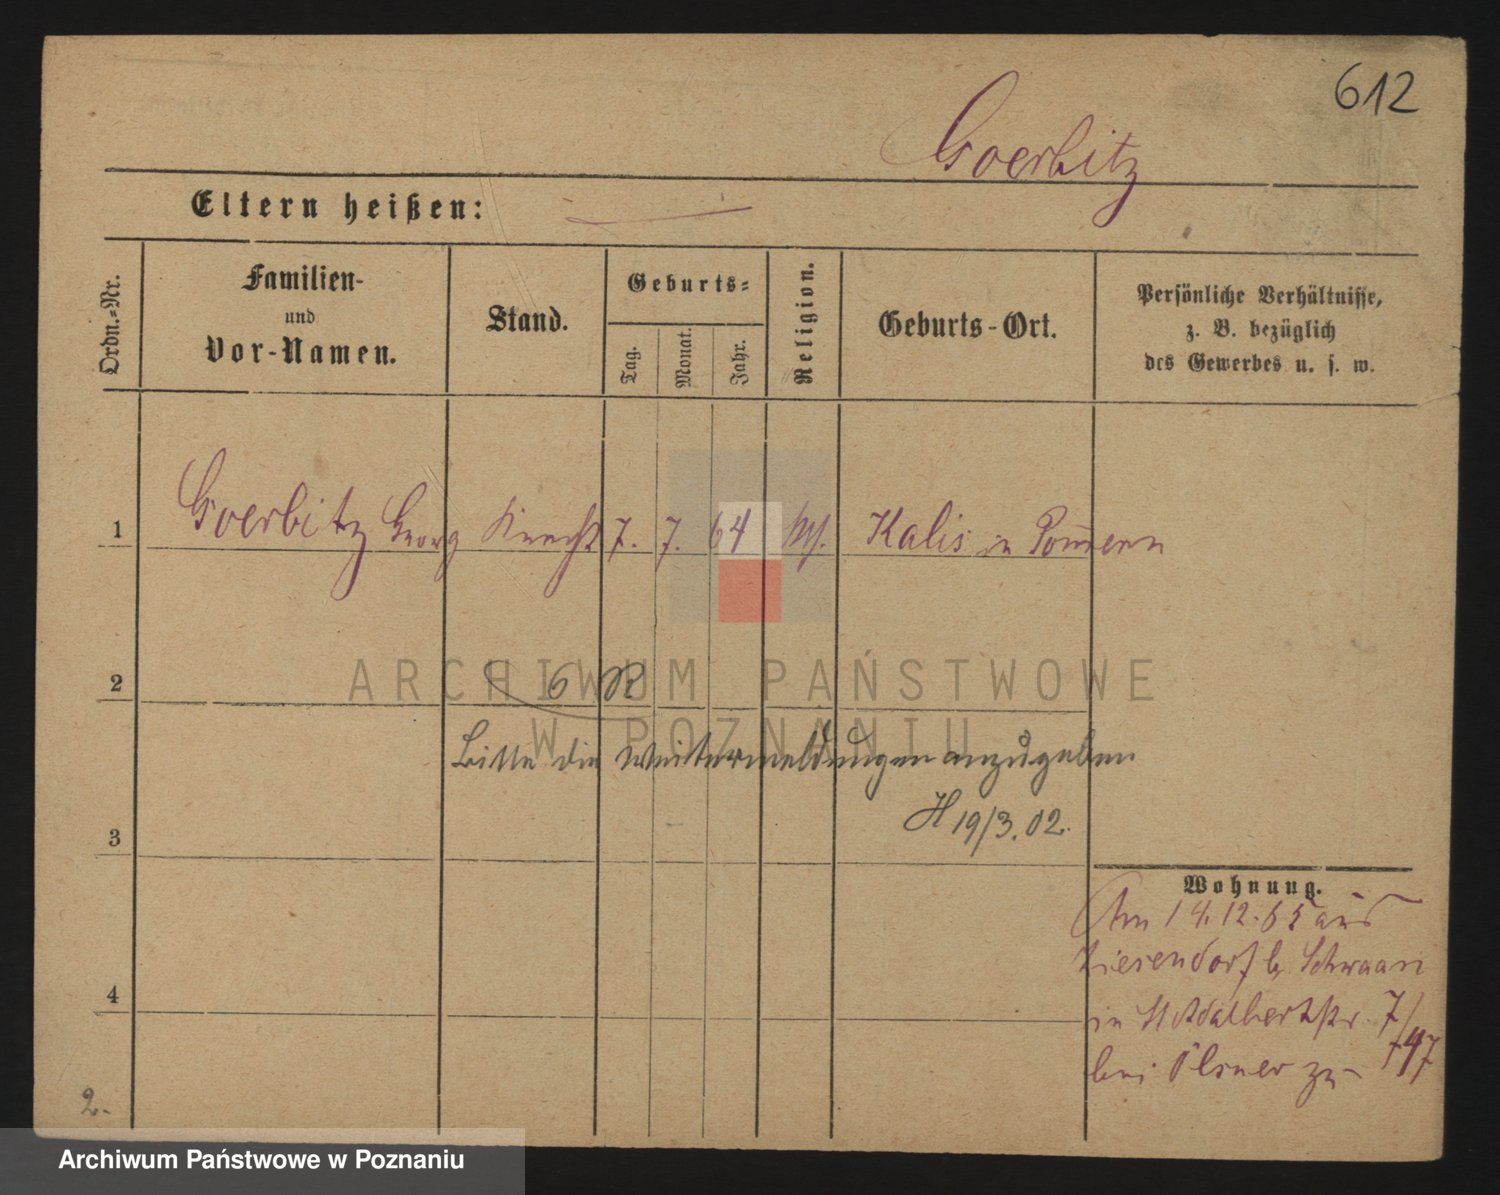 612
Goerbitz
Eltern heißen:
Ordn.-Nr.
Familien-
und
Vor-Namen.
Stand.
Geburts-
Tag.
Monat.
Jahr.
Religion.
Geburts-Ort.
Persönliche Verhältnisse,
z. B. bezüglich
des Gewerbes u. s. w.
1 Goerbitz Georg Knecht 7. 7. 64 Kalis in Pom̄ern
2
6 R
ARCHIWUM PAŃSTWOWE
W POZNANIU
Bitte die Weitermeldungen anzugeben
H 19/3.02.
3
Wohnung.
Am 14.12.65 aus
Ziesendorf b. Schwaan
in St Adalbertstr. 7/
bei zu
4
2.
Archiwum Państwowe w Poznaniu